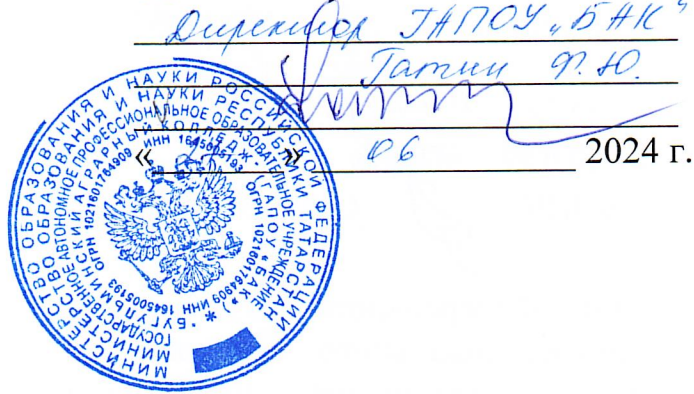 Директор ГАПОУ „БАК“
Гатин Ф.Ю.
« » 06 2024 г.
МИНИСТЕРСТВО ОБРАЗОВАНИЯ И НАУКИ РОССИЙСКОЙ ФЕДЕРАЦИИ
МИНИСТЕРСТВО ОБРАЗОВАНИЯ И НАУКИ РЕСПУБЛИКИ ТАТАРСТАН
ГОСУДАРСТВЕННОЕ АВТОНОМНОЕ ПРОФЕССИОНАЛЬНОЕ ОБРАЗОВАТЕЛЬНОЕ УЧРЕЖДЕНИЕ
"БУГУЛЬМИНСКИЙ АГРАРНЫЙ КОЛЛЕДЖ" (ГАПОУ «БАК») *
ОГРН 1021601764909 ИНН 1645005193 ОГРН 1021601764909 ИНН 1645005193